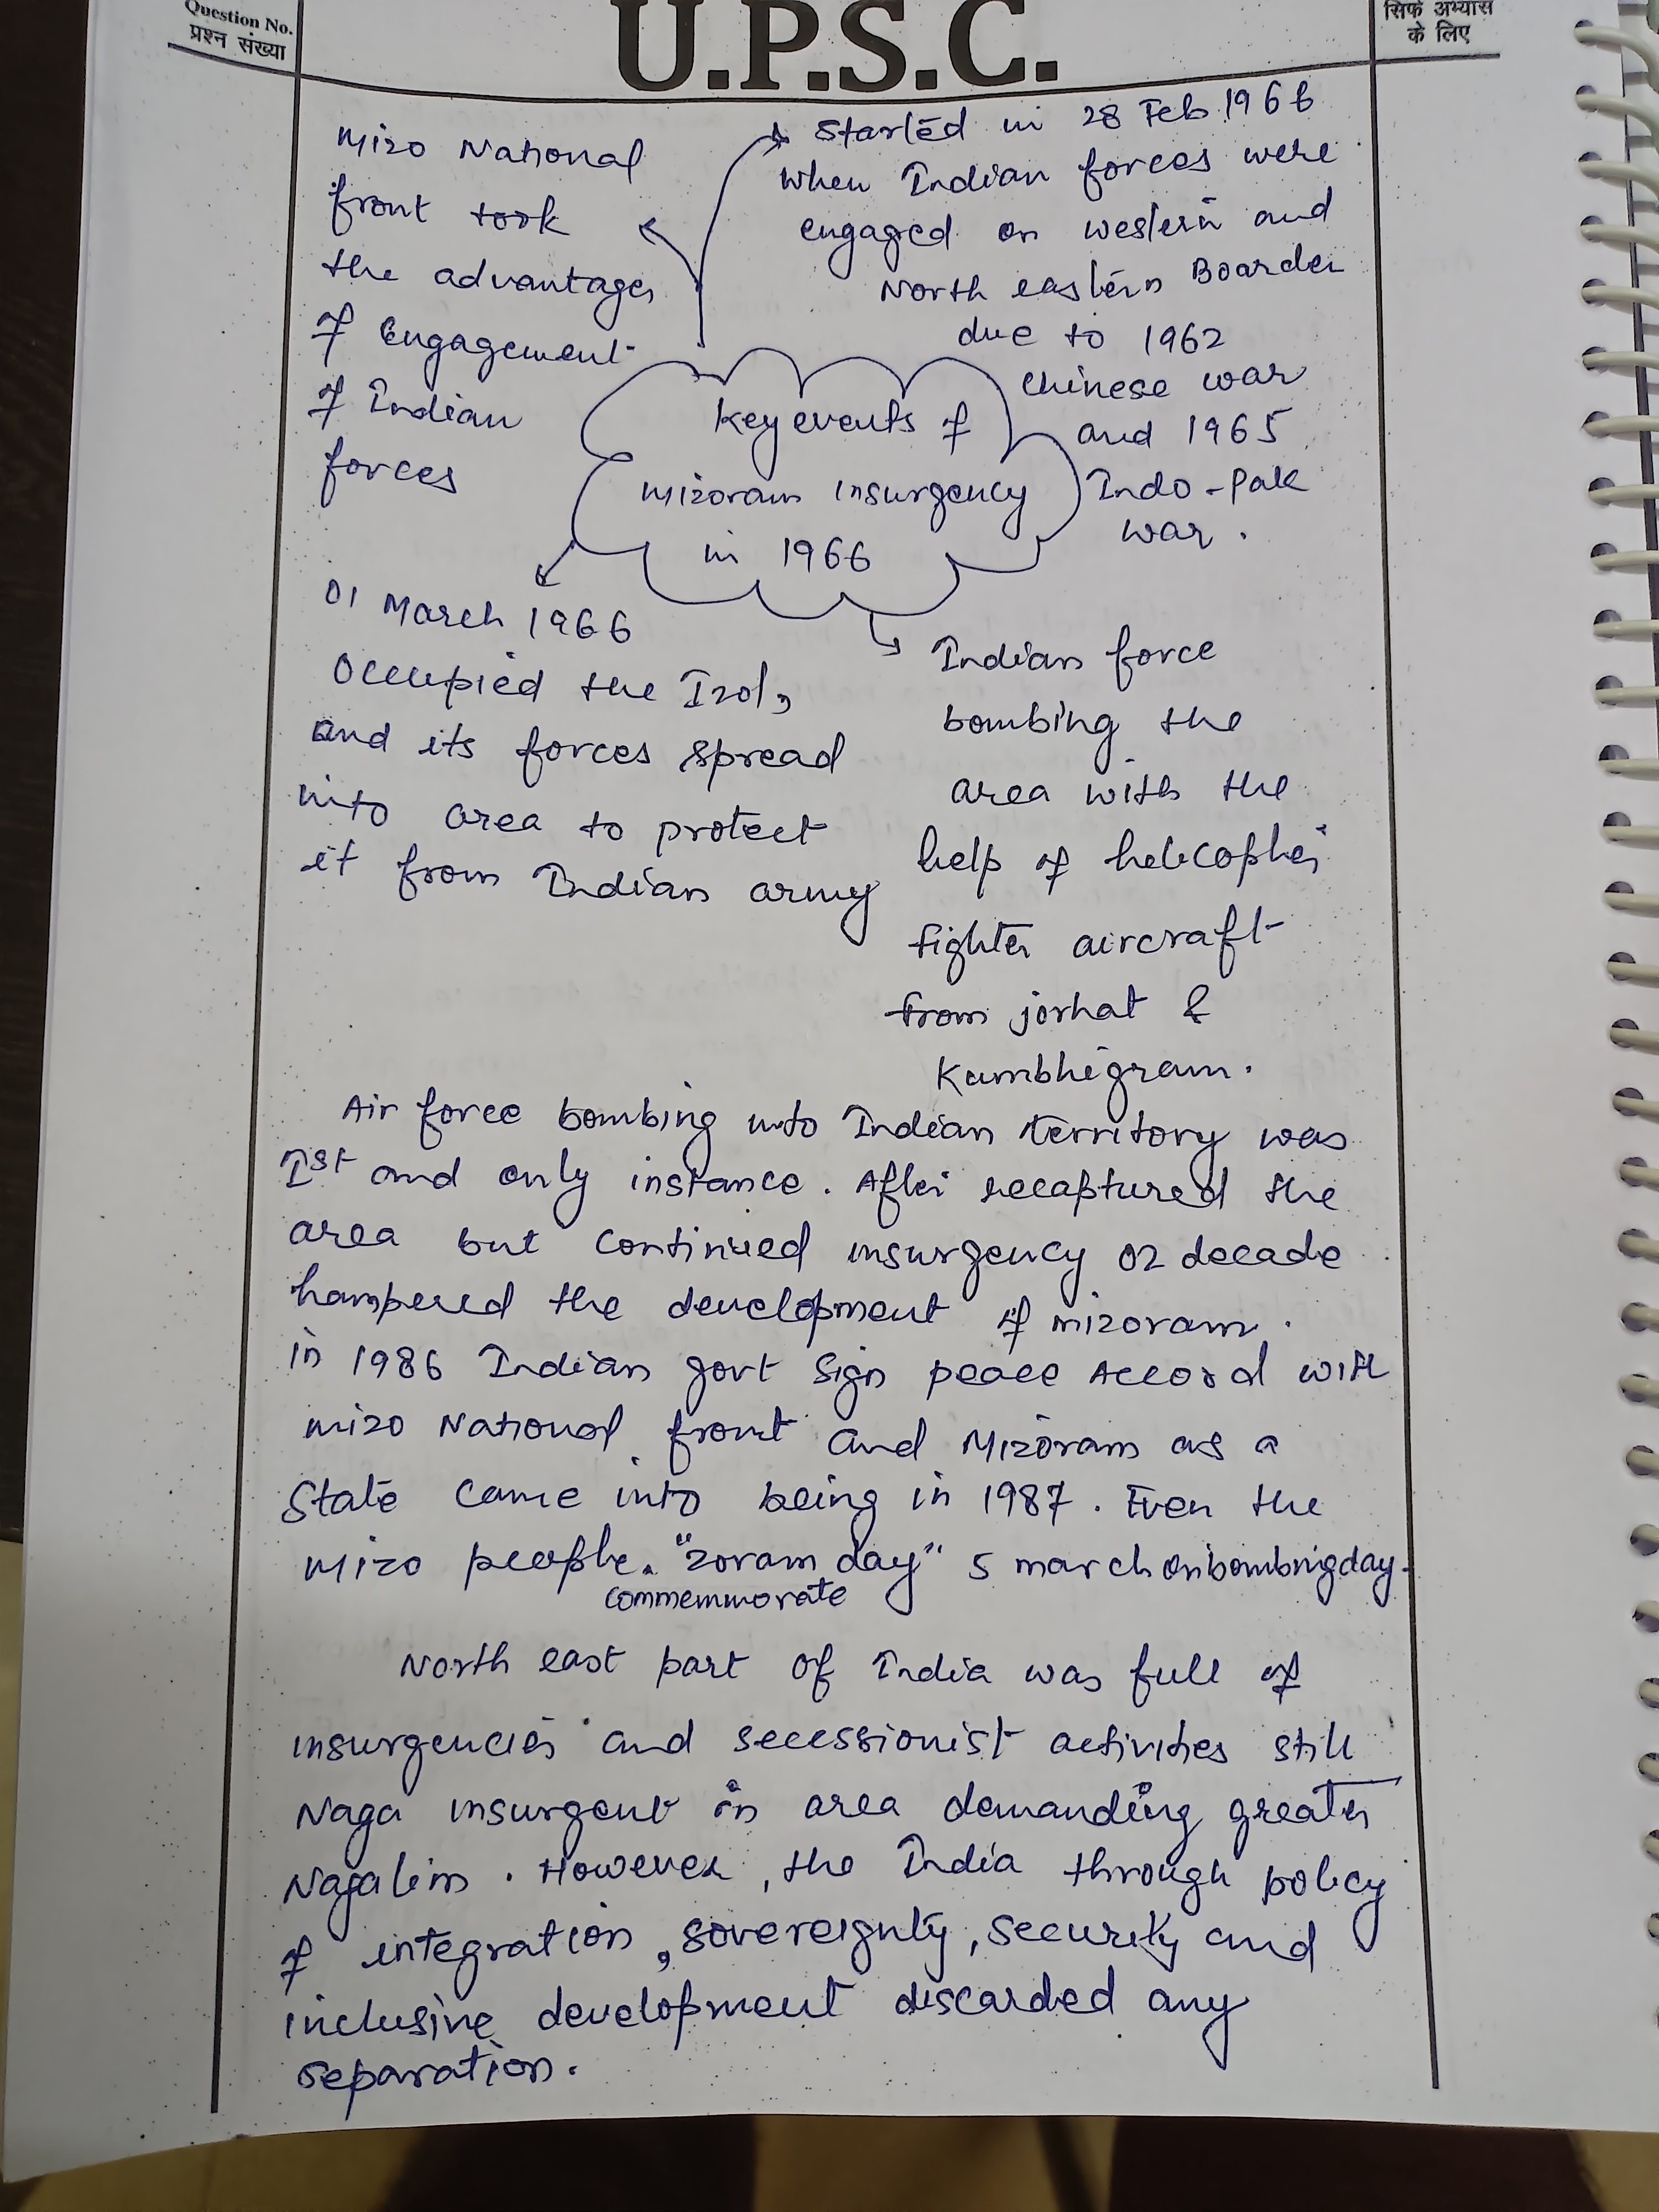 Question No.
प्रश्न संख्या
U.P.S.C.
सिर्फ अभ्यास
के लिए
Mizo National
front took
the advantages
of Engagement
of Indian
forces
Started in 28 Feb 1966
when Indian forces were
engaged on western and
North eastern Boarder
due to 1962
chinese war
and 1965
Indo-Pak
war.
Key events of
mizoram insurgency
in 1966
01 March 1966
Occupied the Izol,
and its forces spread
into area to protect
it from Indian army
Indian force
bombing the
area with the
help of helicopter
fighter aircraft
from jorhat &
Kumbhigram.
Air force bombing into Indian territory was
Ist and only instance. After recaptured the
area but continued insurgency 02 decade
hampered the development of mizoram.
in 1986 Indian govt sign peace Accord with
mizo National front and Mizoram as a
State came into being in 1987. Even the
Mizo people "zoram day" 5 march on bombing day.
commemmorate
North east part of India was full of
insurgencies and secessionist activities still
Naga insurgent in area demanding greater
Nagalim. However, the India through policy
of integration, sovereignty, security and
inclusive development discarded any
separation.